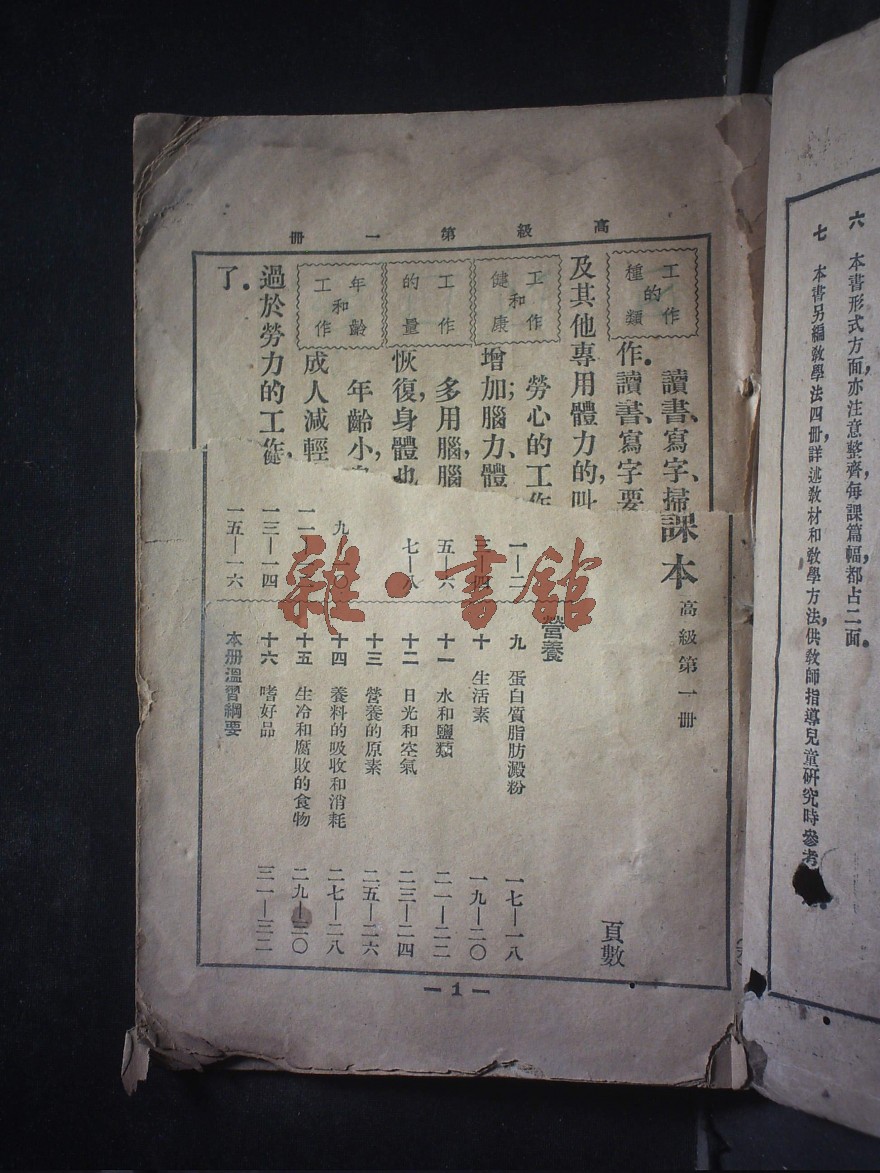 六　本書形式方面，亦注意整齊，每課篇幅，都占二面。
七　本書另編教學法四冊，詳述教材和教學方法，供教師指導兒童研究時參考
高級第一冊
工作的種類
讀書、寫字、掃
作。讀書、寫字要
及其他專用體力的，叫
工作和健康
勞心的工作
增加；腦力、體
工作的量
多用腦，腦
恢復，身體也
年齡和工作
年齡小
成人減輕
過於勞力的工作，
了。
課本　高級第一冊
頁數
一—二
三—四
五—六
七—八
九—一〇
一一
一三—一四
一五—一六
營養
九　蛋白質脂肪澱粉　一七—一八
十　生活素　一九—二〇
十一　水和鹽類　二一—二二
十二　日光和空氣　二三—二四
十三　營養的原素　二五—二六
十四　養料的吸收和消耗　二七—二八
十五　生冷和腐敗的食物　二九—三〇
十六　嗜好品　三一—三二
本册溫習綱要
雜·書館
— 1 —